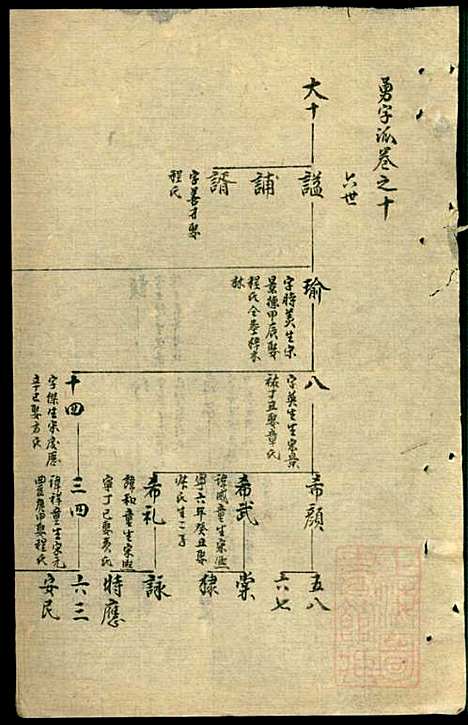 勇字派卷之十
六世
大十
謚
諵
諝
字善才娶
程氏
瑜
字時美生宋
景德甲辰娶
程氏仝墓桦木
林
八
字英生生宋景
祐丁丑娶章氏
十四
字傑生宋慶應
辛巳娶方氏
希顏
希武
諱威童生宋熙
寧六年癸丑娶
氏生二子
希礼
諱和童生宋熙
寧丁巳娶黃氏
三四
諱祥童生宋元
豐庚申娶程氏
五八
六七
棠
棣
詠
時應
六三
安民